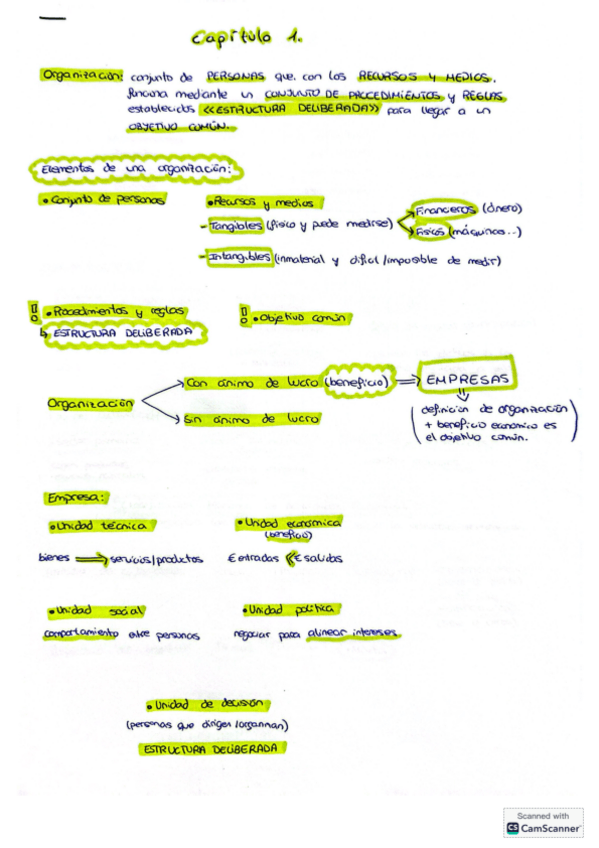 Capítulo 1.
Organización: conjunto de PERSONAS que, con los RECURSOS Y MEDIOS,
funciona mediante un CONJUNTO DE PROCEDIMIENTOS y REGLAS
establecidos <<ESTRUCTURA DELIBERADA>> para llegar a un
OBJETIVO COMÚN.
Elementos de una organización:
• Conjunto de personas
• Recursos y medios
- Tangibles (físico y puede medirse)
Financieros (dinero)
Físicos (máquinas...)
- Intangibles (inmaterial y difícil/imposible de medir)
• Procedimientos y reglas
↳ ESTRUCTURA DELIBERADA
• Objetivo común
Organización
Con ánimo de lucro (beneficio) ⇒ EMPRESAS
Sin ánimo de lucro
(definición de organización
+ beneficio económico es
el objetivo común.)
Empresa:
• Unidad técnica
bienes ⇒ servicios/productos
• Unidad económica
(beneficio)
€ entradas << € salidas
• Unidad social
comportamiento entre personas
• Unidad política
negociar para alinear intereses.
• Unidad de decisión
(personas que dirigen/organizan)
ESTRUCTURA DELIBERADA
Scanned with
CS CamScanner